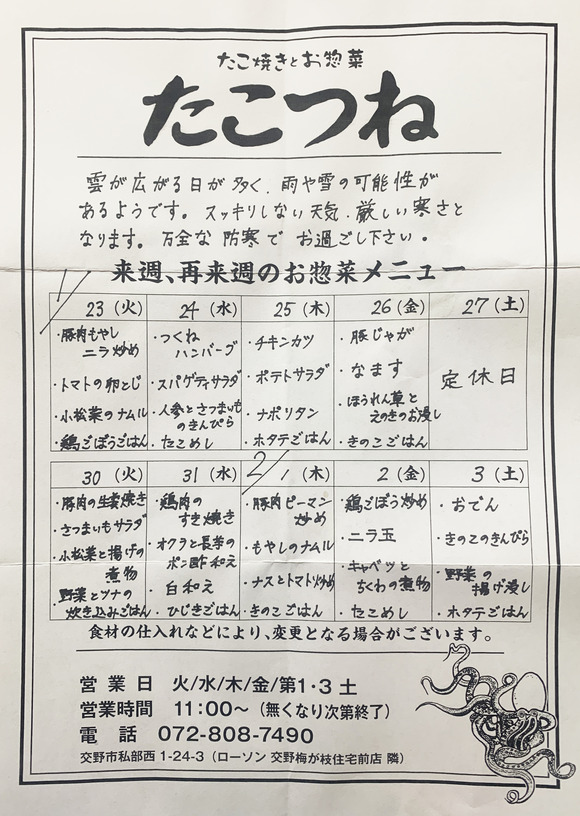 たこ焼きとお惣菜
たこつね
雲が広がる日が多く、雨や雪の可能性が
あるようです。スッキリしない天気、厳しい寒さと
なります。万全な防寒でお過ごし下さい。
来週、再来週のお惣菜メニュー
1/
23 (火) 24 (水) 25 (木) 26 (金) 27 (土)
・豚肉もやし
ニラ炒め
・トマトの卵とじ
・小松菜のナムル
・鶏ごぼうごはん
・つくね
ハンバーグ
・スパゲティサラダ
・人参とさつまいも
のきんぴら
・たこめし
・チキンカツ
・ポテトサラダ
・ナポリタン
・ホタテごはん
・豚じゃが
・なます
・ほうれん草と
えのきのお浸し
・きのこごはん
定休日
30 (火) 31 (水) 2/1 (木) 2 (金) 3 (土)
・豚肉の生姜焼き
・さつまいもサラダ
・小松菜と揚げの
煮物
・野菜とツナの
炊き込みごはん
・鶏肉の
すき焼き
・オクラと長芋の
ポン酢和え
・白和え
・ひじきごはん
・豚肉ピーマン
炒め
・もやしのナムル
・ナスとトマト炒め
・きのこごはん
・鶏ごぼう炒め
・ニラ玉
・キャベツと
ちくわの煮物
・たこめし
・おでん
・きのこのきんぴら
・野菜の
揚げ浸し
・ホタテごはん
食材の仕入れなどにより、変更となる場合がございます。
営業日 火/水/木/金/第1・3 土
営業時間 11:00〜（無くなり次第終了）
電話 072-808-7490
交野市私部西 1-24-3（ローソン 交野梅が枝住宅前店 隣）